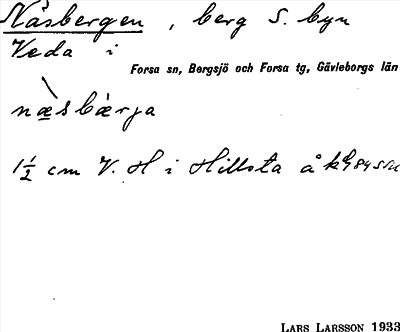 Näsbergen, berg S. byn
Veda i
Forsa sn, Bergsjö och Forsa tg, Gävleborgs län
næsbærja
1½ cm V. H i Hillsta å
LARS LARSSON 1933